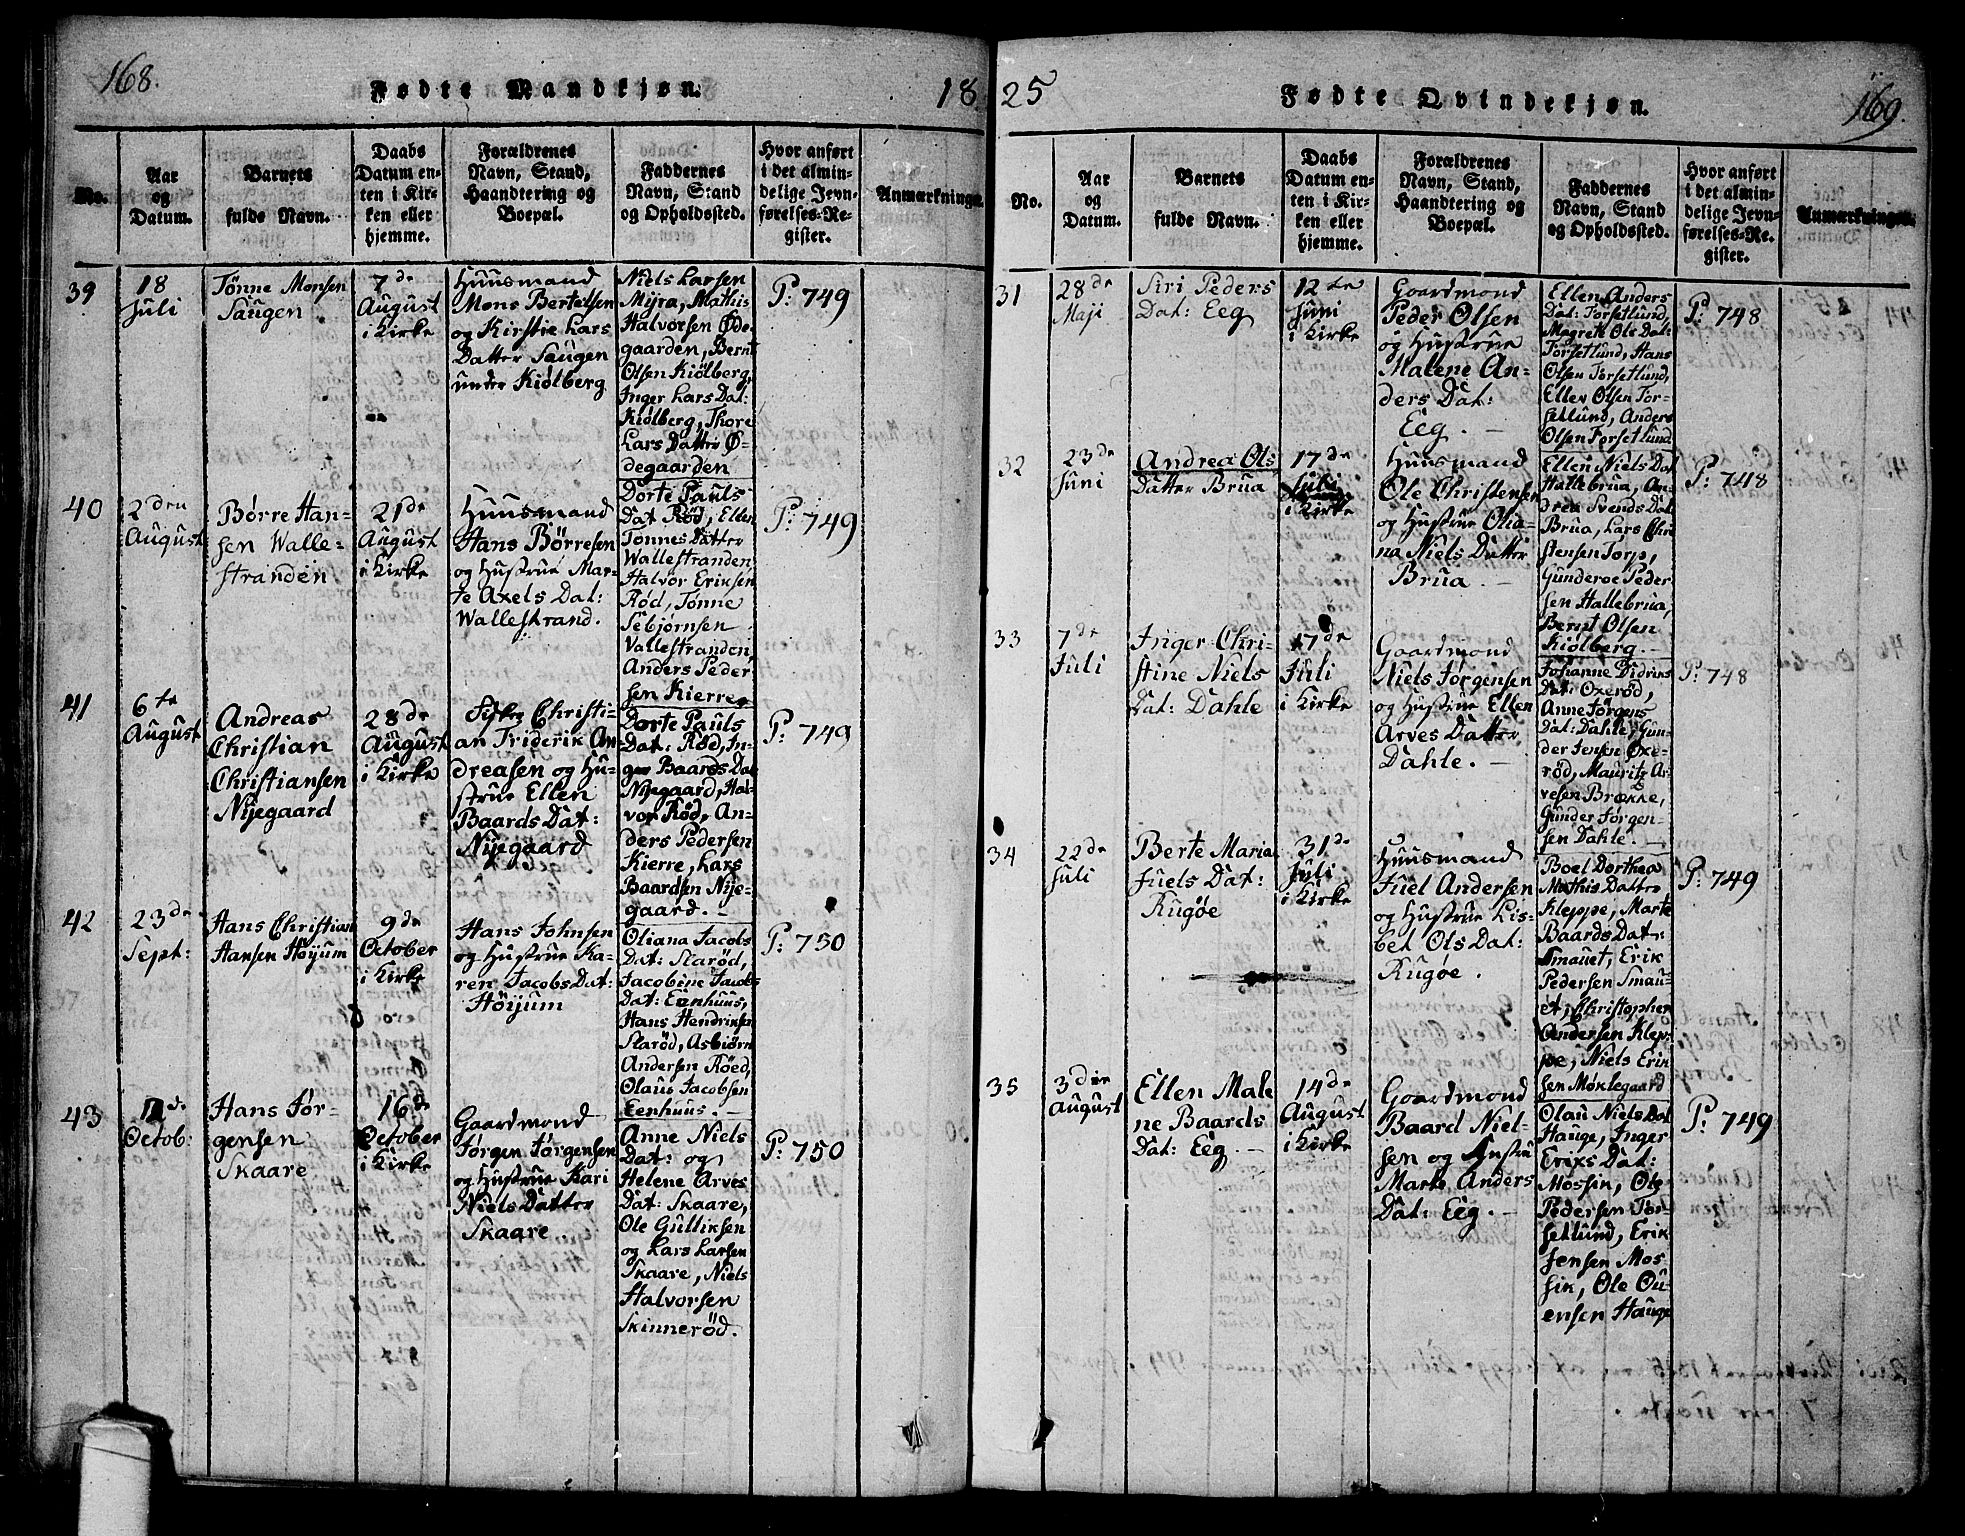 168.
Fødte Mandkjøn.
18
No.
Aar
og
Datum.
Barnets
fulde Navn.
Daabs
Datum en-
ten i Kir-
ken eller
hjemme.
Forældrenes
Navn, Stand,
Haandtering og
Boepæl.
Faddernes
Navn, Stand
og Opholdssted.
Hvor anført
i det almin-
delige Jevn-
førelses-Re-
gister.
Anmærkninger.
39
18
Juli
Tønne Monsen
Saugen
7de
August
i Kirke
Huusmand
Mons Bertelsen
og Kirstie Lars
Datter Saugen
under Kiølberg
Niels Larsen
Mijra, Mathis
Halvorsen Øde-
gaarden, Bernt
Olsen Kiølberg,
Inger Lars Dat:
Kiølberg, Thore
Lars Datter Ø-
degaarden
P: 749
40
2den
August
Børre Han-
sen Walle-
stranden
21de
August
i Kirke
Huusmand
Hans Børresen
og Hustrue Mar-
te Axels Dat:
Wallestrand.
Dorte Pauls
Dat Röd, Ellen
Tønnes Datter
Wallestranden,
Halvor Eriksen
Röd, Tønne
Sebjørnsen
Vallestranden,
Anders Peder
sen Kierre
P: 749
41
6te
August
Andreas
Christian
Christiansen
Nijegaard
28de
August
i Kirke
Christi-
an Friderik An-
dreasen og Hu-
strue Ellen
Baards Dat:
Nijegaard
Dorte Pauls
Dat: Röd, In-
ger Baards Dat
Nijegaard, Hal-
vor Röd, An-
ders Pedersen
Kierre, Lars
Baardsen Nije-
gaard. -
P: 749
42
23de
Sept:
Hans Christian
Hansen Höyum
9de
October
i Kirke
Hans Johnsen
og Hustrue Ka-
ren Jacobs Dat:
Höyum
Oliana Jacobs
Dat: Slaröd,
Jacobine Jacobs
Dat: Eenhuus,
Hans Hendriksen
Slaröd, Asbiörn
Andersen Röed,
Olaus Jacobsen
Eenhuus. -
P: 750
43
Octob:
Hans Jør-
gensen
Skaare
16de
October
i Kirke
Gaardmond
Jørgen Jørgensen
og Hustrue Kari
Niels Datter
Skaare
Anne Niels
Dat: og
Helene Arves
Dat: Skaare,
Ole Gulliksen
og Lars Larsen
Skaare, Niels
Halvorsen
Skinneröd.
P: 750
25
Fødte Qvindekjøn.
169.
No.
Aar
og
Datum.
Barnets
fulde Navn.
Daabs
Datum en-
ten i Kir-
ken eller
hjemme.
Forældrenes
Navn, Stand,
Haandtering og
Boepæl.
Faddernes
Navn, Stand
og Opholdssted.
Hvor anført
i det almin-
delige Jevn-
førelses-Re-
gister.
Anmærkninger.
31
28de
Maji
Siri Peders
Dat: Eeg
12te
Juni
i Kirke
Gaardmond
Peder Olsen
og Hustrue
Malene An-
ders Dat:
Eeg. -
Ellen Anders
Dat: Torsetlund,
Magrete Ols Dat:
Torsetlund, Hans
Olsen Torsetlund,
Ellev Olsen Tor-
setlund, Anders
Olsen Torsetlund
P: 748
32
23de
Juni
Andrea Ols
Datter Brua
17de
Juli
i Kirke
Huusmand
Ole Christensen
og Hustrue Olia-
na Niels Datter
Brua. -
Ellen Niels Dat
Hallebrua, An-
drea Svends Dat
Brua, Lars Chri
stensen Torp,
Gunderoe Peder
sen Hallebrua,
Bernt Olsen
Kiølberg. -
P: 748
33
7de
Juli
Inger Chri-
stine Niels
Dat: Dahle
17de
Juli
i Kirke
Gaardmond
Niels Jørgensen
og Hustrue Ellen
Arves Datter
Dahle. -
Johanne Didriks
Dat: Oxeröd,
Anne Jørgens
Dat: Dahle, Gun-
der Jensen Oxe-
röd, Mauritz Ar-
vesen Brække,
Gunder Jørgen-
sen Dahle. -
P: 748
34
22de
Juli
Berte Maria
Juels Dat:
Rugøe
31de
Juli
i Kirke
Huusmand
Juel Andersen
og Hustrue Lis-
bet Ols Dat:
Rugøe.
Boel Dorthea
Mathis Datter
Kleppe, Marte
Baards Dat:
Smauet, Erik
Pedersen Smau-
et, Christopher
Andersen Klep-
pe, Niels Erik
sen Møklegaard
P: 749
35
3die
August
Ellen Male
ne Baards
Dat: Eeg. -
14de
August
i Kirke
Gaardmond
Baard Niel-
sen og Hustru
Marte Anders
Dat: Eeg. -
Olau Niels Dat
Hauge, Inger
Eriks Dat:
Mossen, Ole
Pedersen Tor-
setlund, Erik
Jensen Mos-
sik, Ole Ou-
ensen Hauge
P: 749